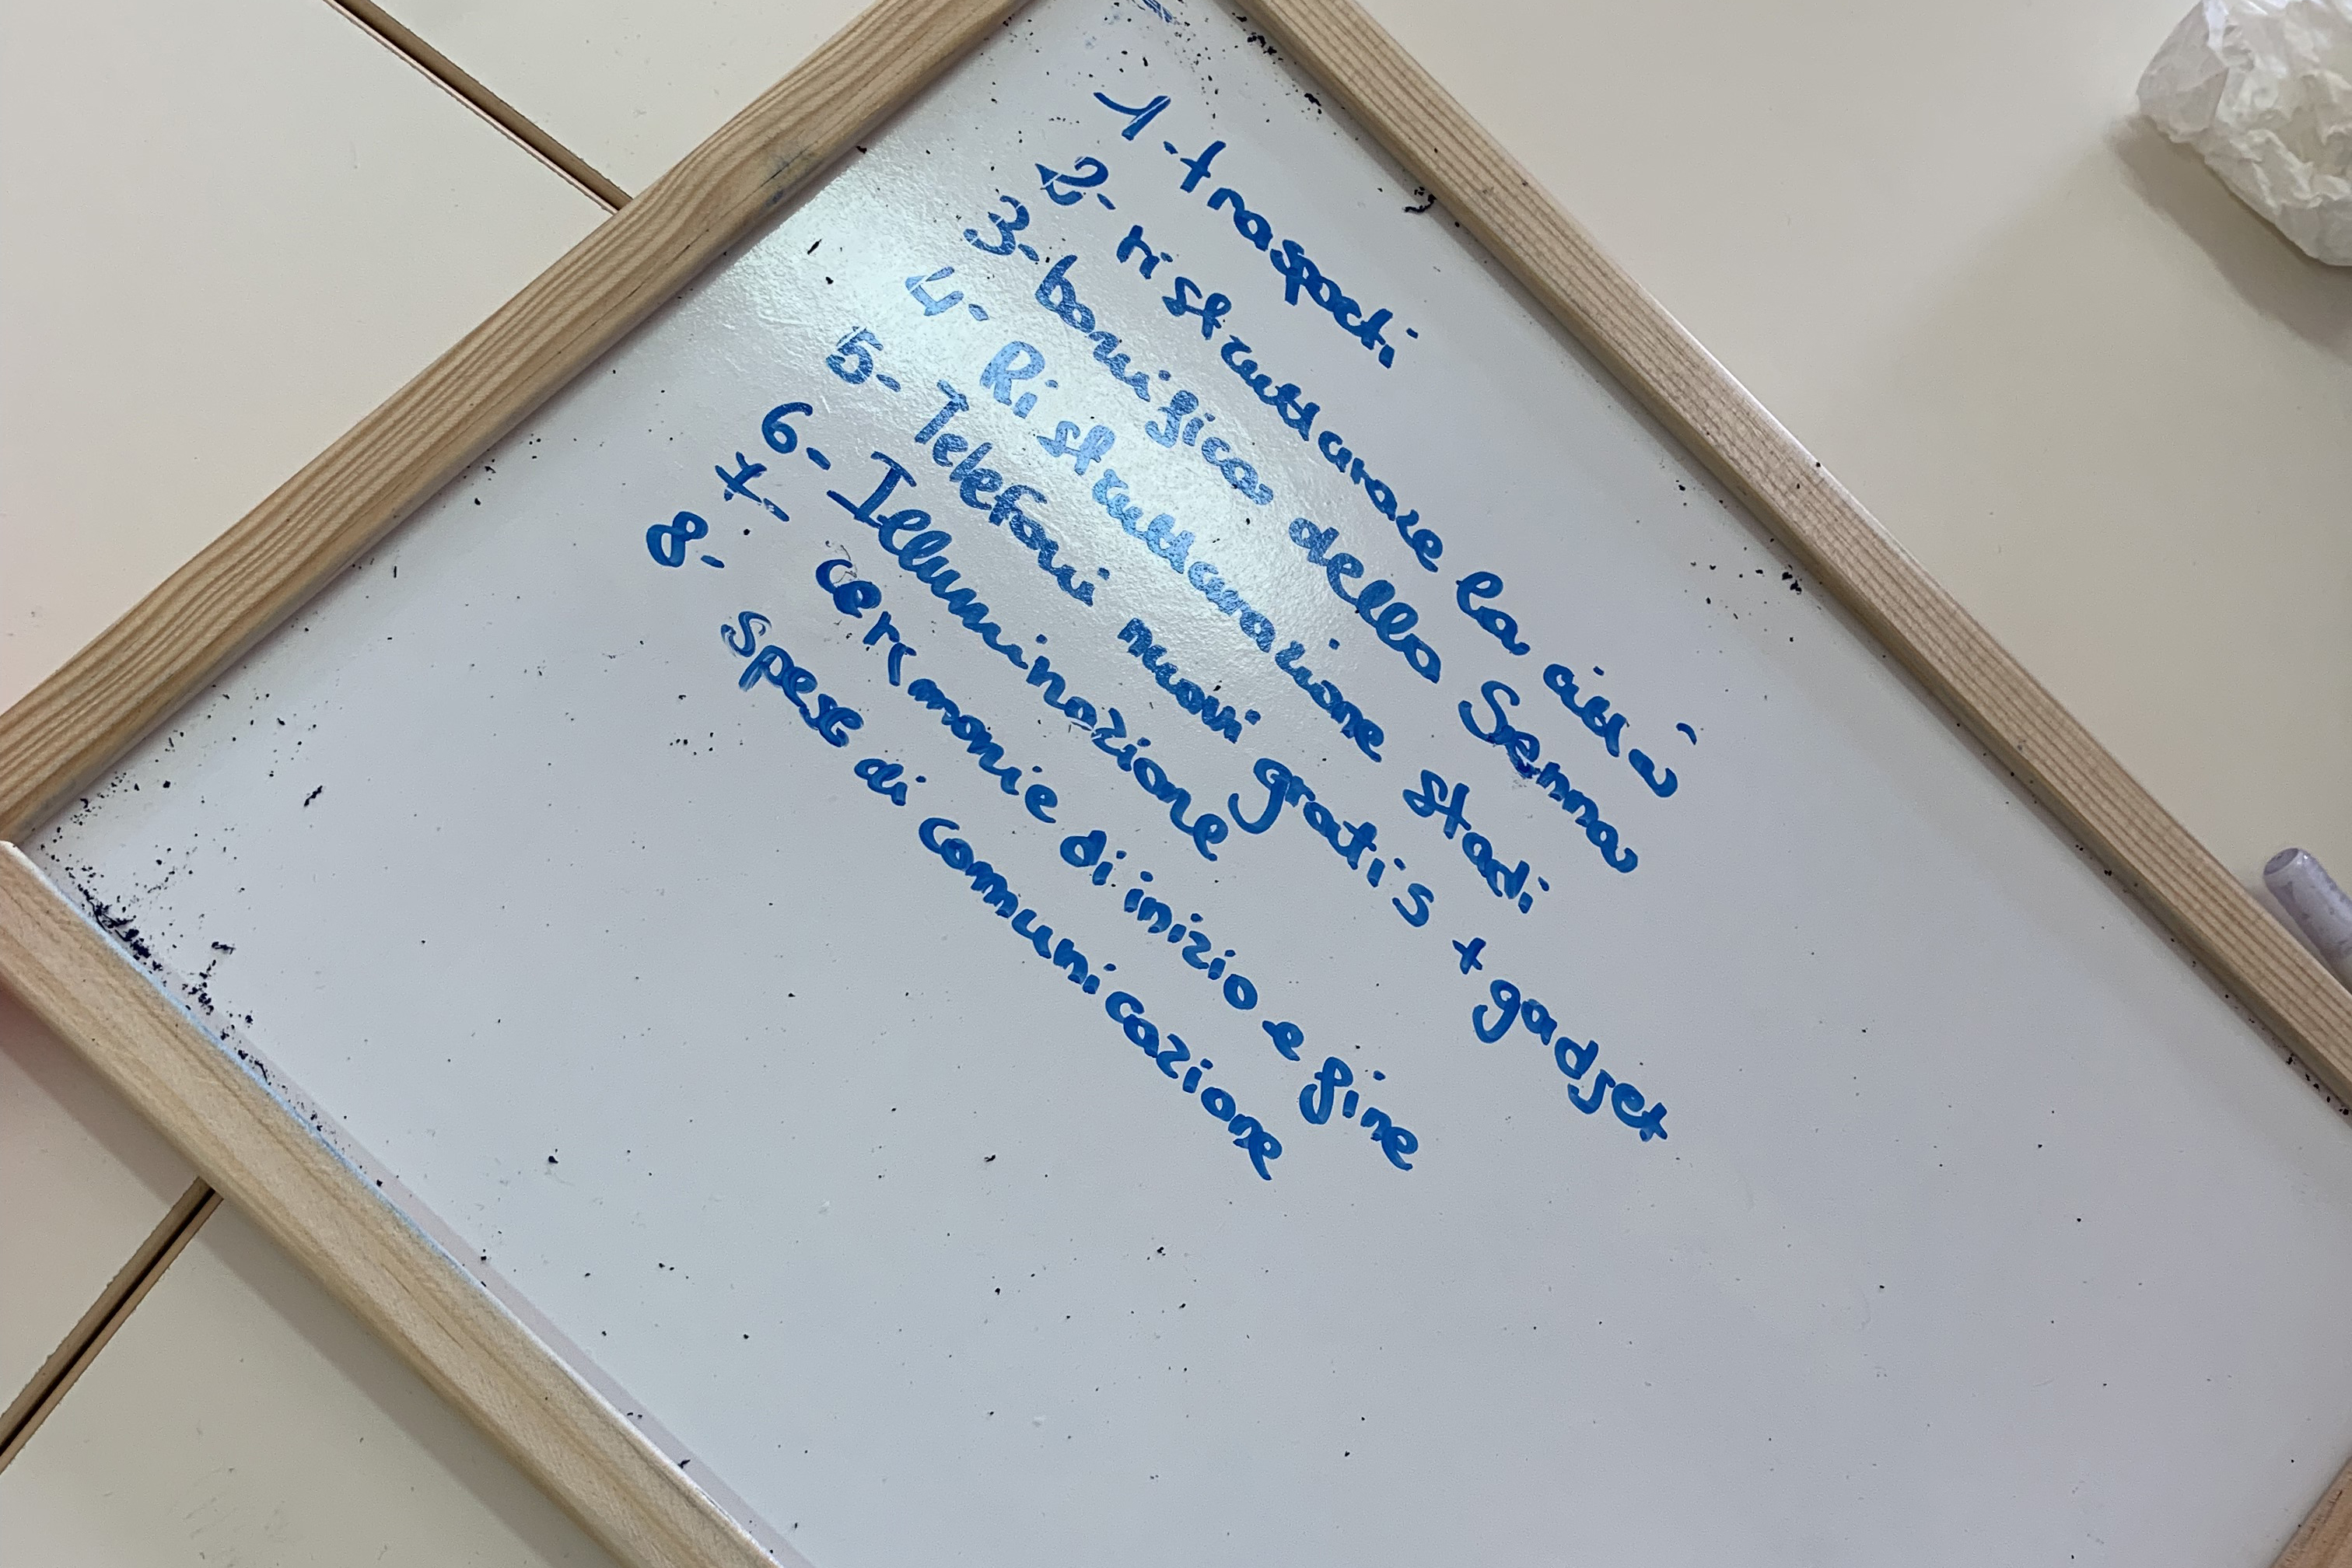 1 - traspoti
2 - ristrutturare la città
3 - bonifica della Senna
4 - Ristrutturazione stadi
5 - Telefoni nuovi gratis + gadget
6 - Illuminazione
7 - cerimonie di inizio e fine
8 - spese di comunicazione